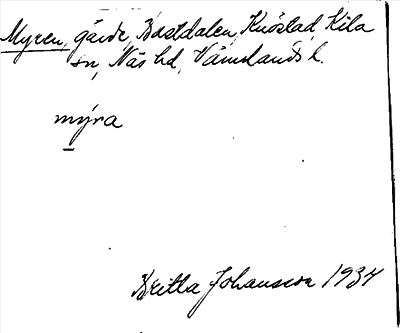 Myren, gärde, Bastdalen, Knöstad, Kila
sn, Näs hd, Värmlands l.
myra
Britta Johansson 1934